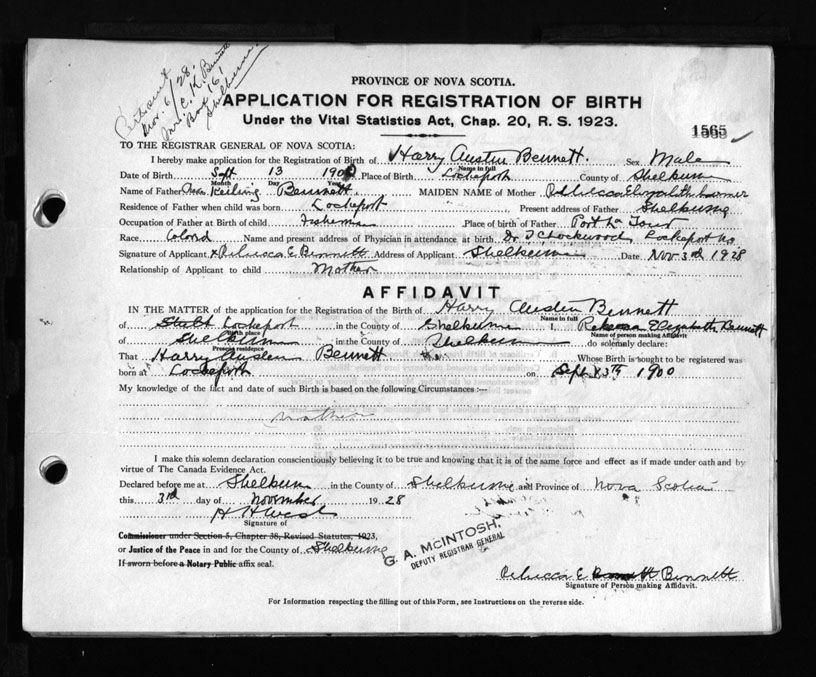 Mrs. E. K. Bennett
Nov. 6/28.
Box 161
Shelburne.
PROVINCE OF NOVA SCOTIA.
APPLICATION FOR REGISTRATION OF BIRTH
Under the Vital Statistics Act, Chap. 20, R. S. 1923.
1565
TO THE REGISTRAR GENERAL OF NOVA SCOTIA:
I hereby make application for the Registration of Birth of Harry Austin Bennett. Sex Male
Name in full
Date of Birth Sept 13 1900 Place of Birth Lockeport County of Shelburne
Month Day Year
Name of Father Bennett. MAIDEN NAME of Mother Elizabeth
Residence of Father when child was born Lockeport Present address of Father Shelburne
Occupation of Father at Birth of child Fisherman Place of birth of Father Port La Tour
Race Colord Name and present address of Physician in attendance at birth Dr. Lockwood Lockeport N.S.
Signature of Applicant X Rebecca E. Bennett Address of Applicant Shelburne Date Nov 3rd 1928
Relationship of Applicant to child Mother
AFFIDAVIT
IN THE MATTER of the application for the Registration of the Birth of Harry Austin Bennett
Name in full
of Lockeport in the County of Shelburne I, Rebecca Elizabeth Bennett
Birth place Name of person making Affidavit
of Shelburne in the County of Shelburne do solemnly declare:
Present residence
That Harry Austen Bennett Whose Birth is sought to be registered was
born at Lockeport on Sept 13th 1900
My knowledge of the fact and date of such Birth is based on the following Circumstances :—
Mother
I make this solemn declaration conscientiously believing it to be true and knowing that it is of the same force and effect as if made under oath and by
virtue of The Canada Evidence Act.
Declared before me at Shelburne in the County of Shelburne and Province of Nova Scotia
this 3rd day of November 1928
H H West
Signature of
Commissioner under Section 5, Chapter 38, Revised Statutes, 1923,
or Justice of the Peace in and for the County of Shelburne
If sworn before a Notary Public affix seal.
G. A. McINTOSH,
DEPUTY REGISTRAR GENERAL
Rebecca E Bennett
Signature of Person making Affidavit.
For Information respecting the filling out of this Form, see Instructions on the reverse side.